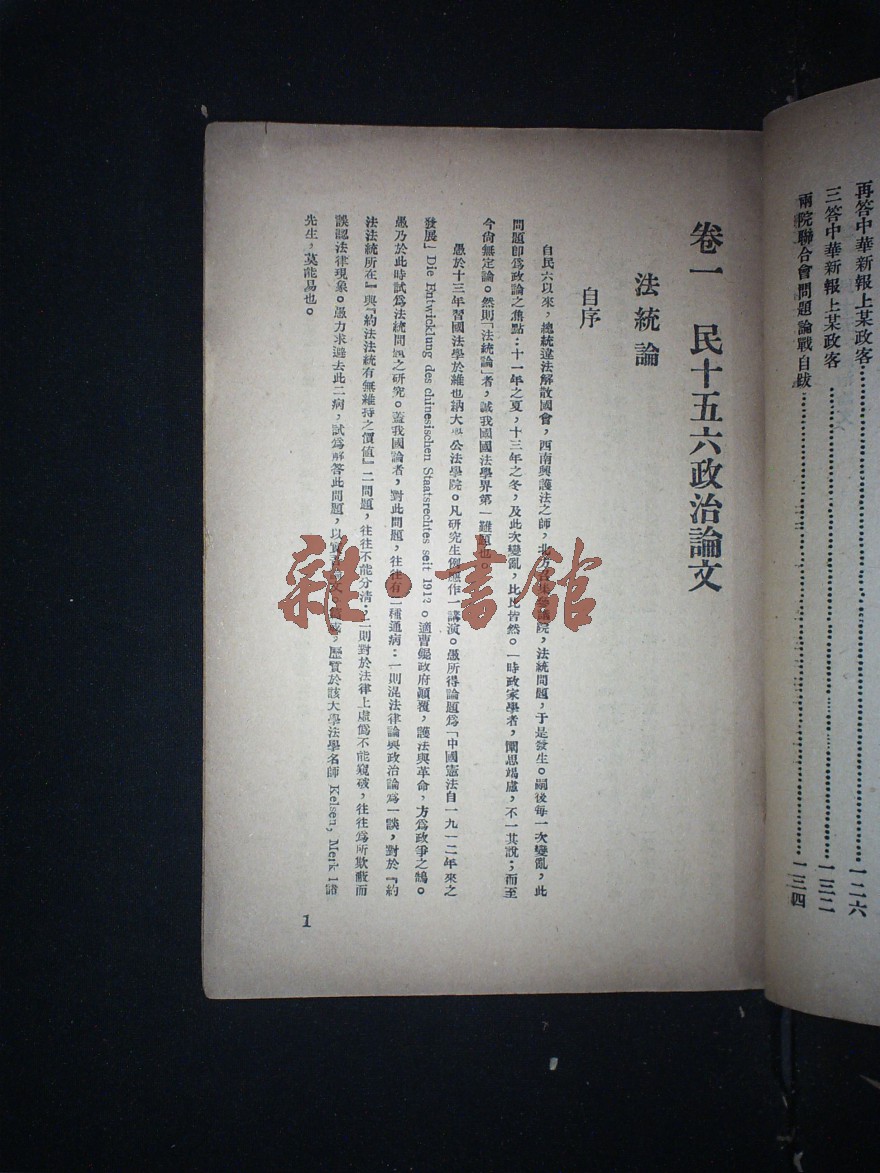 再答中華新報上某政客……一二六
三答中華新報上某政客……一三二
兩院聯合會問題論戰自跋……一三四
卷一　民十五六政治論文
法統論
自序
自民六以來，總統違法解散國會，西南興護法之師，北方召集參議院，法統問題，于是發生。嗣後每一次變亂，此
問題卽爲政論之焦點：十一年之夏，十三年之冬，及此次變亂，比比皆然。一時政家學者，闡思竭慮，不一其說；而至
今尙無定論。然則「法統論」者，誠我國國法學界第一難題也。
愚於十三年習國法學於維也納大學公法學院。凡研究生例應作一講演。愚所得論題爲「中國憲法自一九一二年來之
發展」Die Entwicklung des chinesischen Staatsrechtes seit 1912。適曹錕政府顚覆，護法與革命，方爲政爭之鵠。
愚乃於此時試爲法統問題之研究。蓋我國論者，對此問題，往往有二種通病：一則混法律論與政治論爲一談，對於『約
法法統所在』與『約法法統有無維持之價值』二問題，往往不能分清；二則對於法律上虛僞不能窺破，往往爲所欺蔽而
誤認法律現象。愚力求避去此二病，試爲解答此問題，以
歷質於該大學法學名師 Kelsen, Merkl 諸
先生，莫能易也。
1
雜·書館